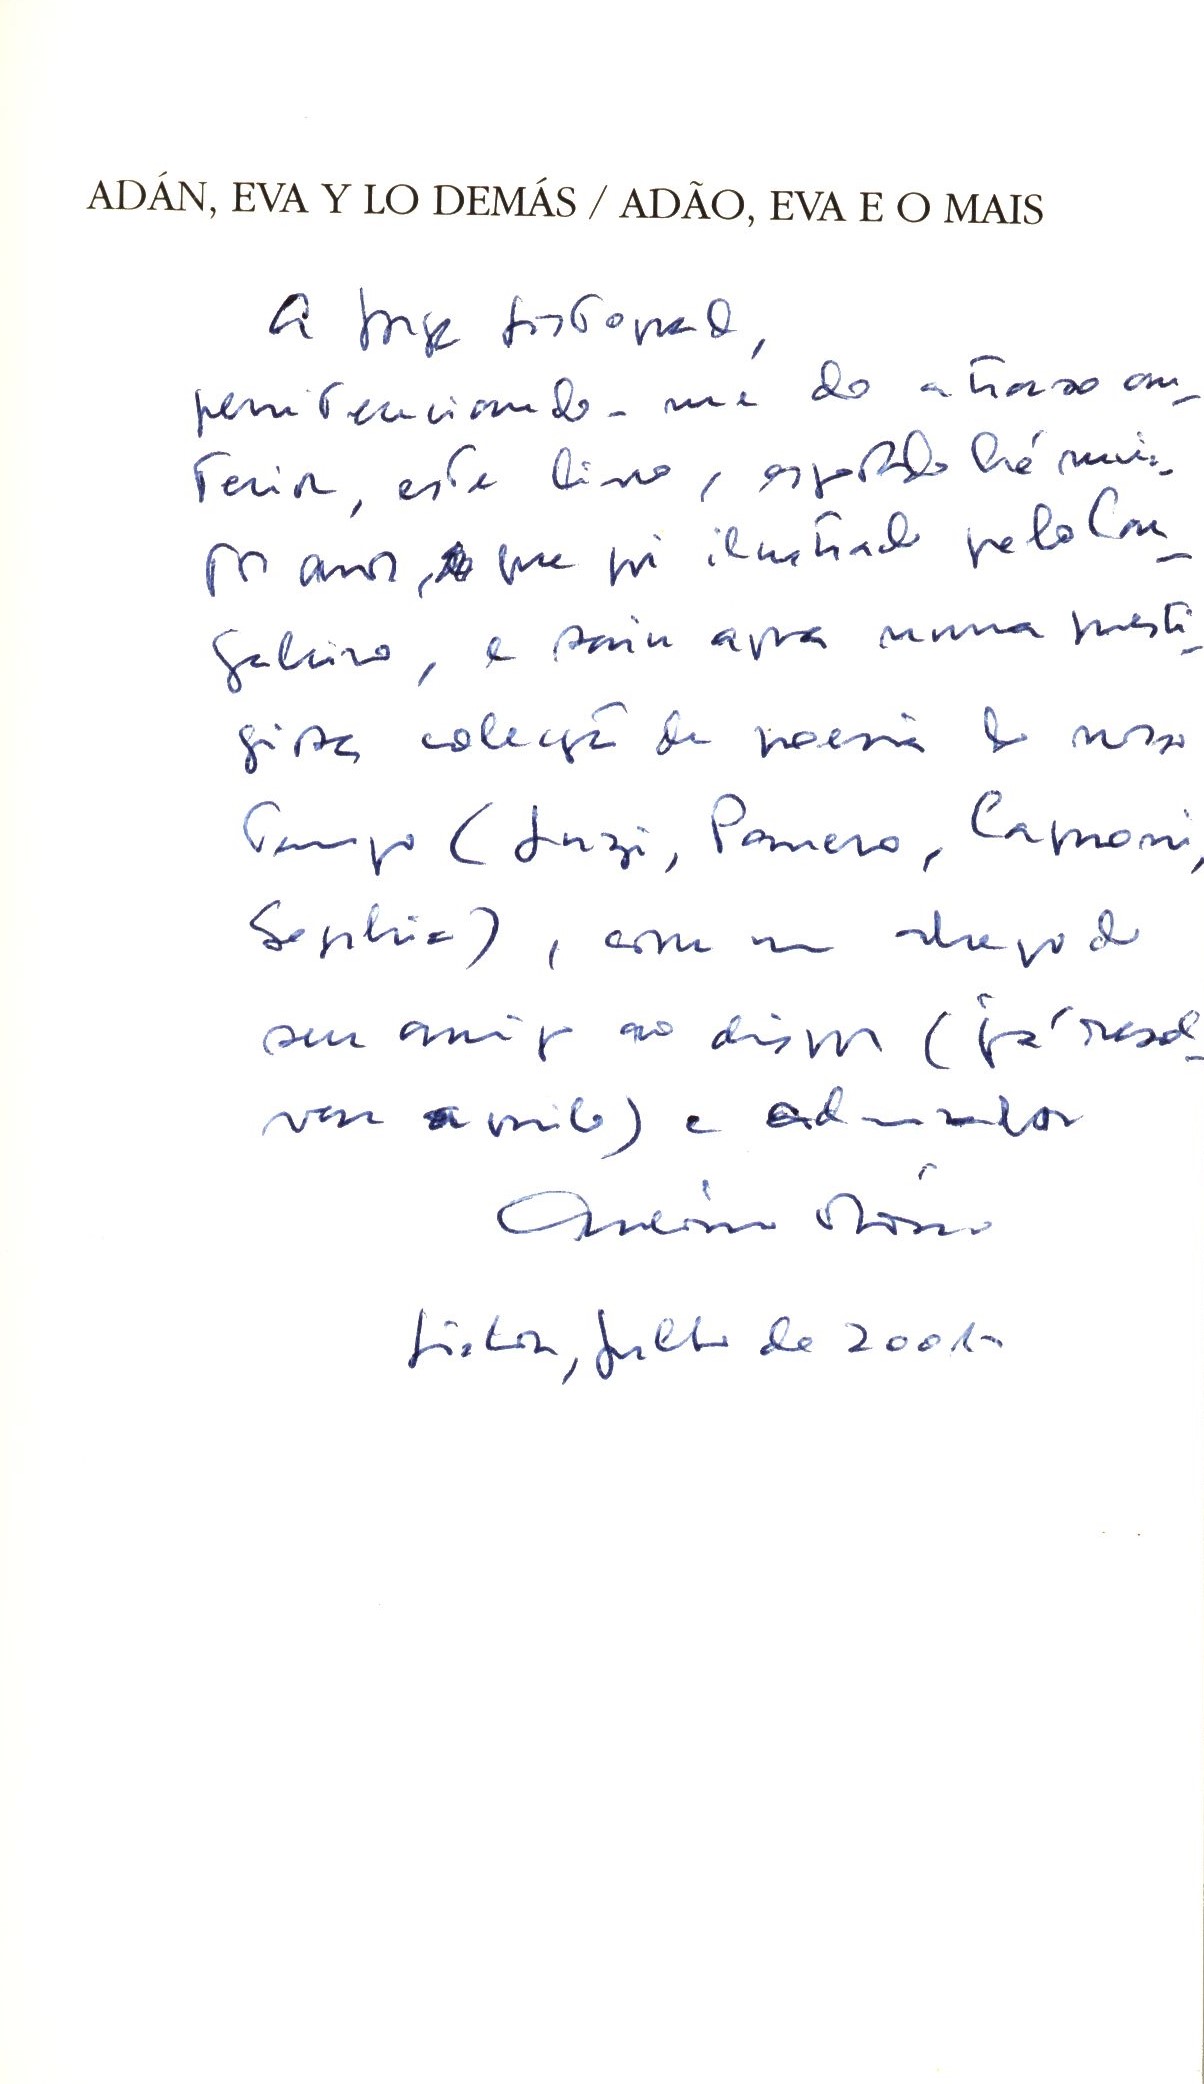 ADÁN, EVA Y LO DEMÁS / ADÃO, EVA E O MAIS
A Jorge Listopad,
penitenciando-me do atraso an-
terior, este livro, esgotado há mui-
tos anos, que foi ilustrado pelo Can-
galeiro, e saiu agora numa presti-
giosa colecção de poesia do nosso
Tempo (Luzi, Romero, Caproni,
Sophia), com um abraço do
seu amigo ao dispor (já resol-
vem a vida) e admirador
António Osório
Lisboa, Julho de 2001